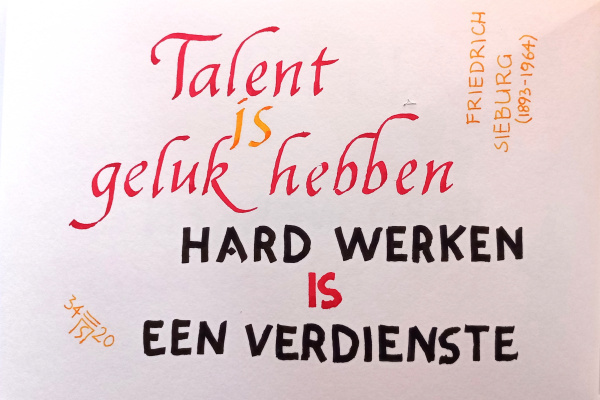 Talent
is
geluk hebben
HARD WERKEN
IS
EEN VERDIENSTE
FRIEDRICH
SIEBURG
(1893-1964)